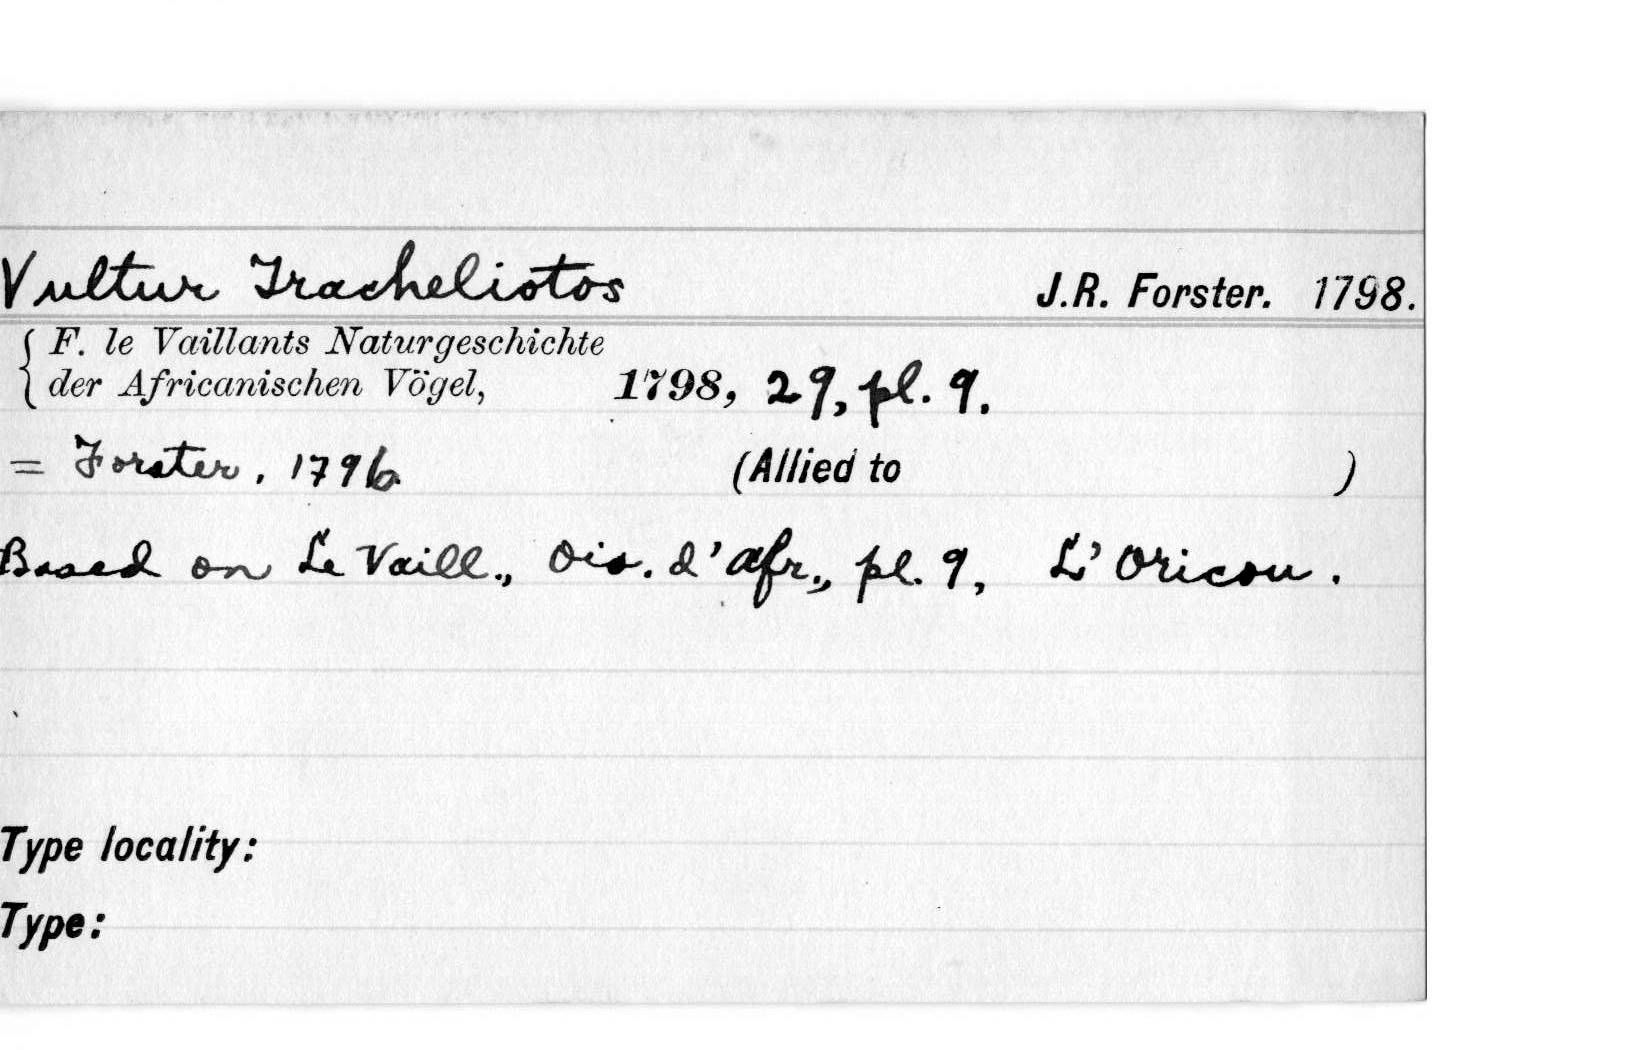 Vultur Tracheliotos J.R. Forster. 1798.
F. le Vaillants Naturgeschichte
der Africanischen Vögel, 1798, 29, pl. 9.
= Forster, 1796 (Allied to )
Based on Le Vaill., Ois. d'Afr., pl. 9, L'Oricou.
Type locality:
Type: